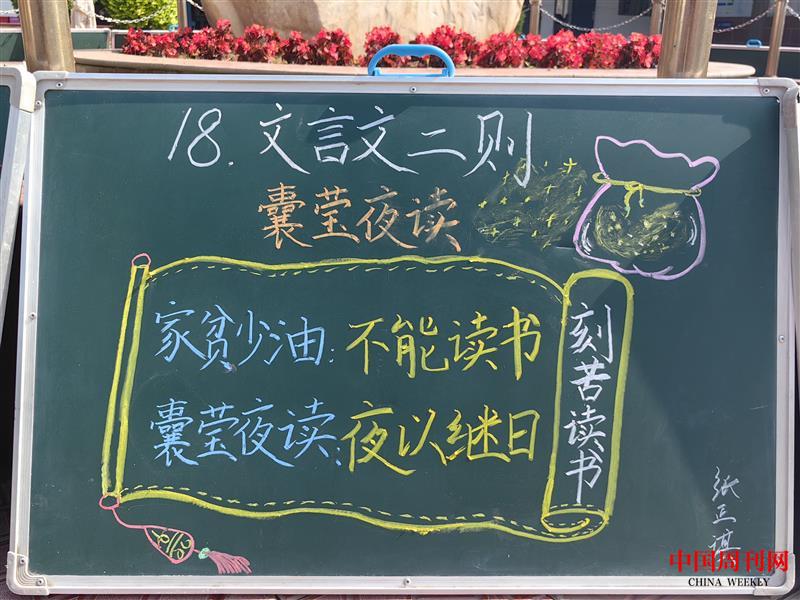 18.文言文二则
囊莹夜读
家贫少油:不能读书
囊莹夜读:夜以继日
刻苦读书
中国周刊网
CHINA WEEKLY